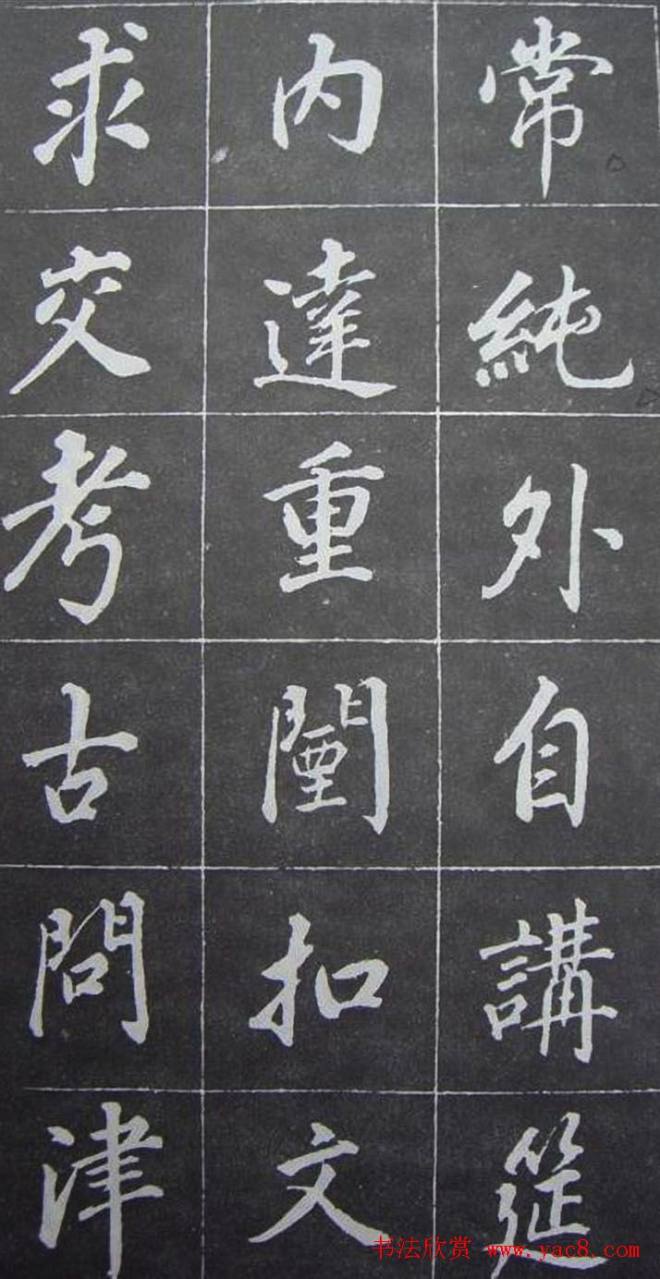 常純外自講筵
内達重闉扣文
求交考古問津
书法欣赏 www.yac8.com